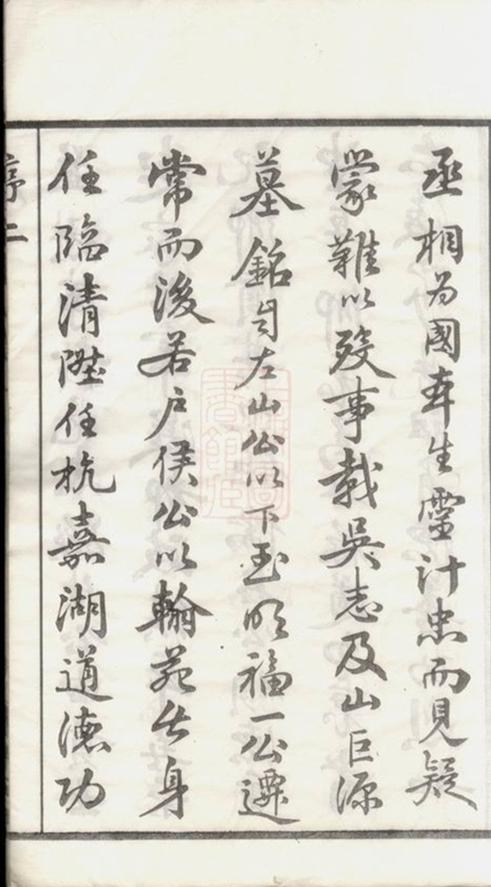 丞相为國奉生靈计忠而見疑
蒙難以殁事載吳志及山巨源
墓銘自左山公以下至明福一公遷
常而後若戶侯公以翰苑出身
任臨清陞任杭嘉湖道德功
序二